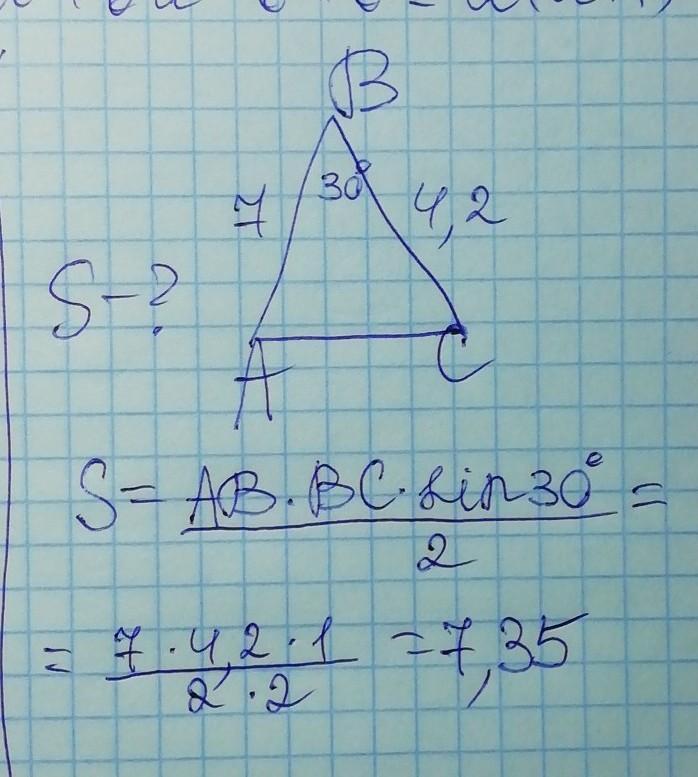 B
30°
7
4,2
S-?
A
C
S = AB·BC·sin30° / 2 =
= 7·4,2·1 / 2·2 = 7,35